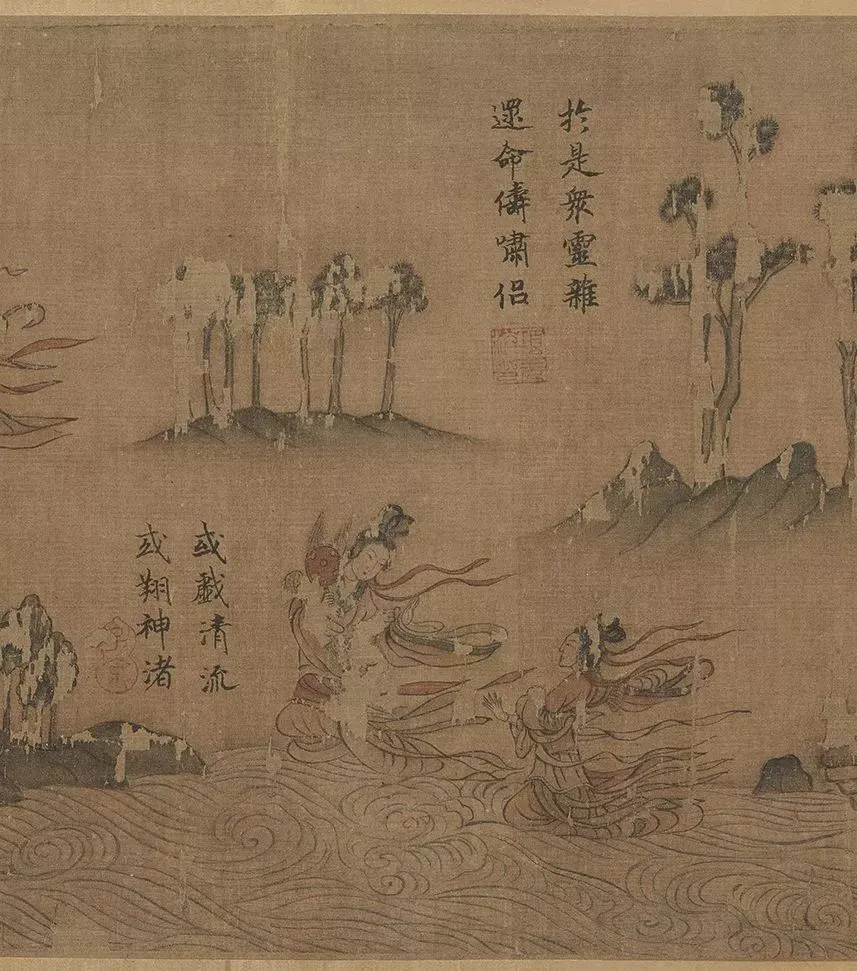 於是衆靈雜
遝命儔嘯侣
或戲清流
或翔神渚